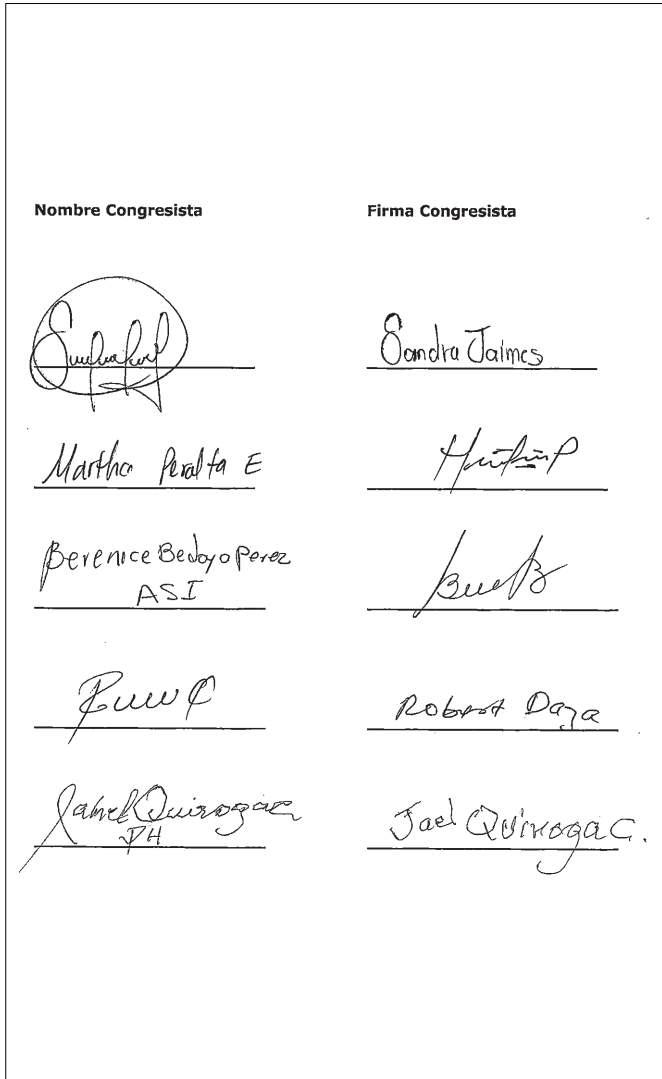 Nombre Congresista Firma Congresista
Sandra Jaimes
Martha Peralta E
Berenice Bedoya Perez
ASI
Robert Daza
Jahel Quiroga
DH
Jael Quiroga C.